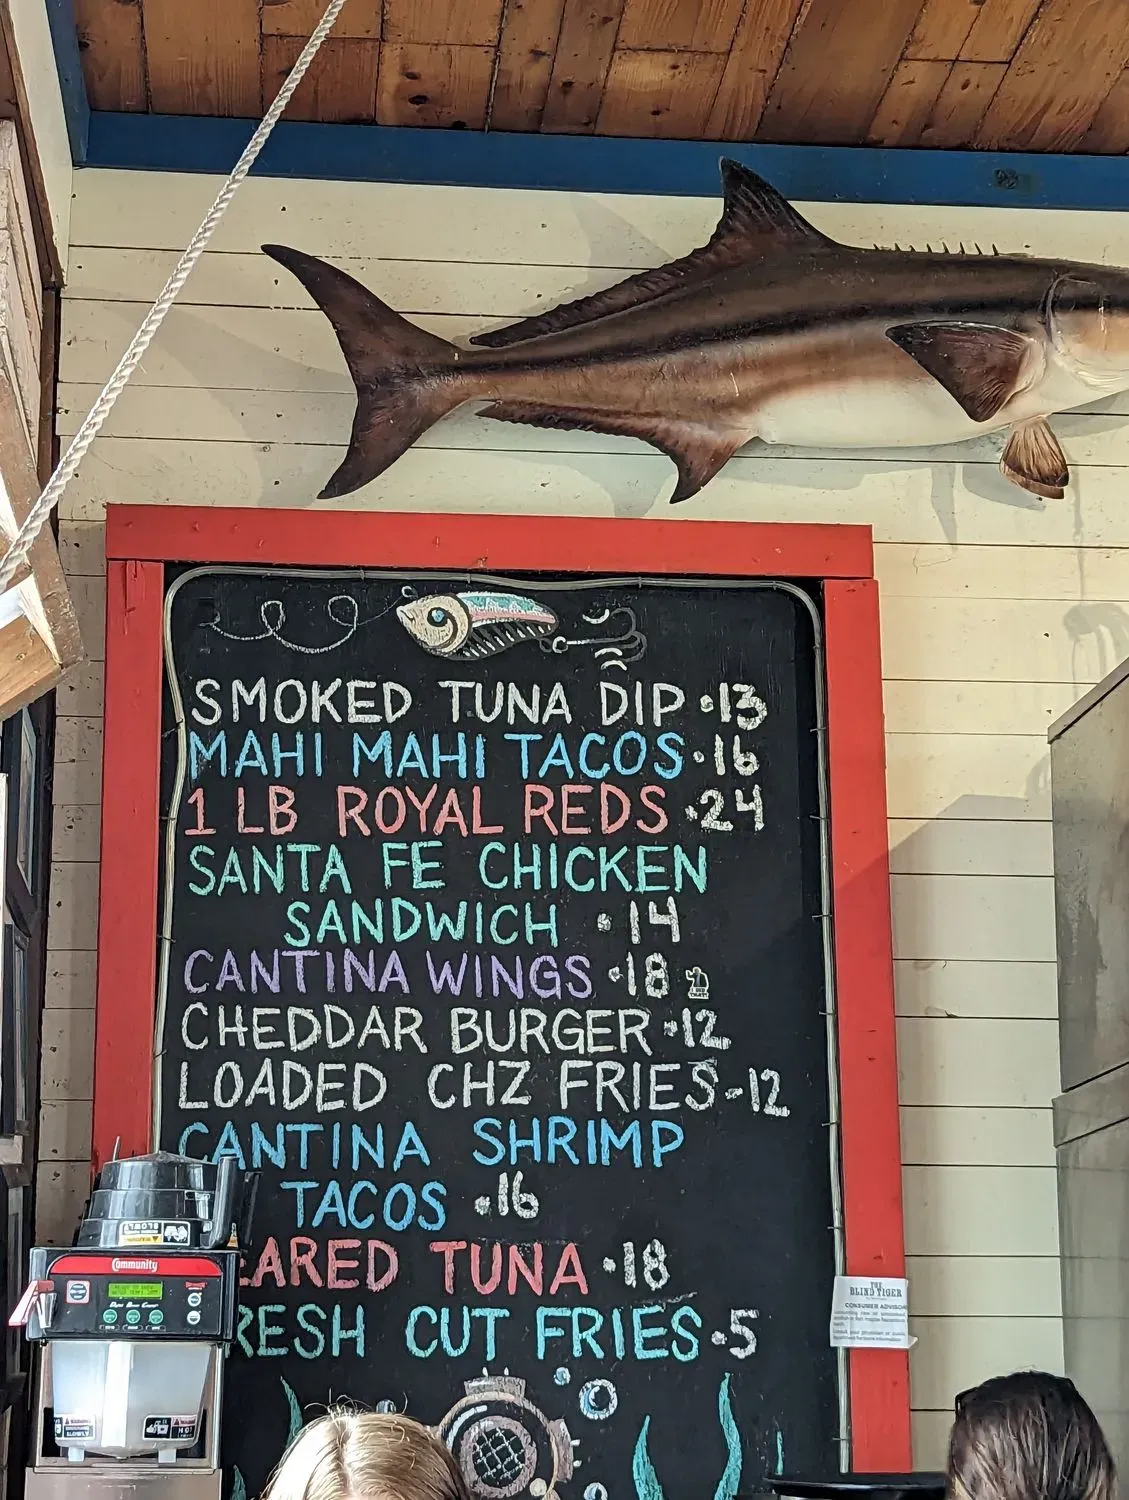 SMOKED TUNA DIP · 13
MAHI MAHI TACOS · 16
1 LB ROYAL REDS · 24
SANTA FE CHICKEN
SANDWICH · 14
CANTINA WINGS · 18
CHEDDAR BURGER · 12
LOADED CHZ FRIES - 12
CANTINA SHRIMP
TACOS · 16
EARED TUNA · 18
RESH CUT FRIES · 5
Community
THE
BLIND TIGER
CONSUMER ADVISOR